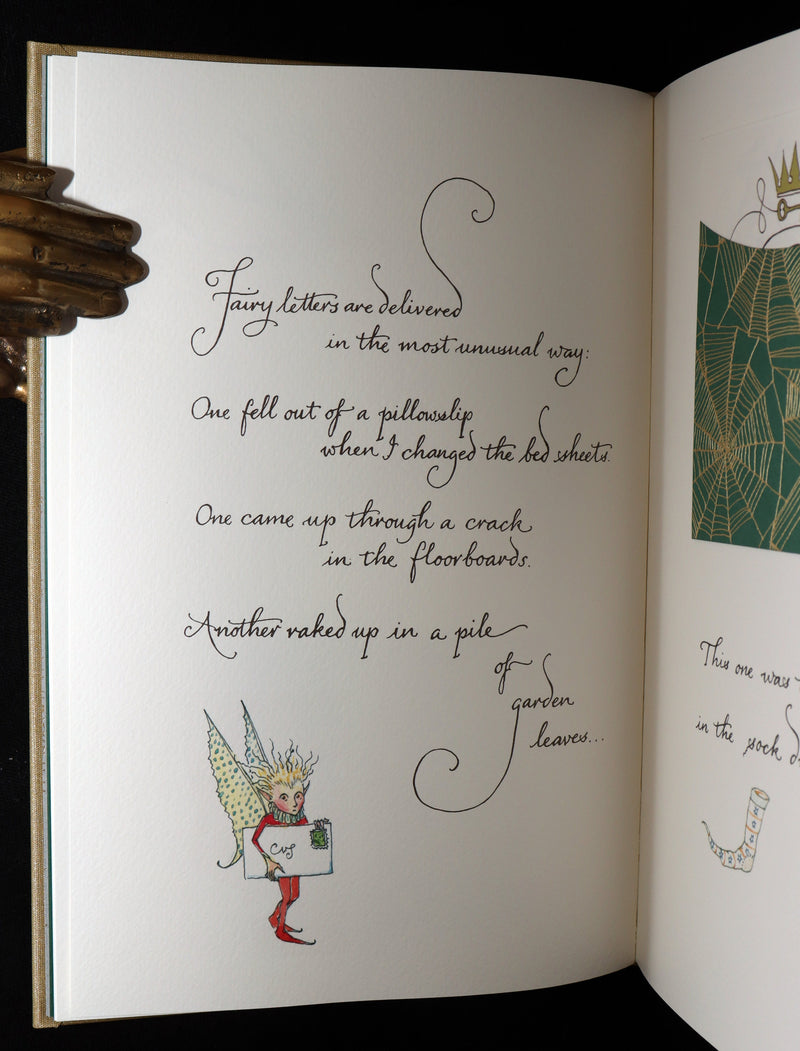 Fairy letters are delivered
in the most unusual way:
One fell out of a pillowslip
when I changed the bed sheets.
One came up through a crack
in the floorboards.
Another raked up in a pile
of
garden
leaves...
CvS
This one was
in the sock